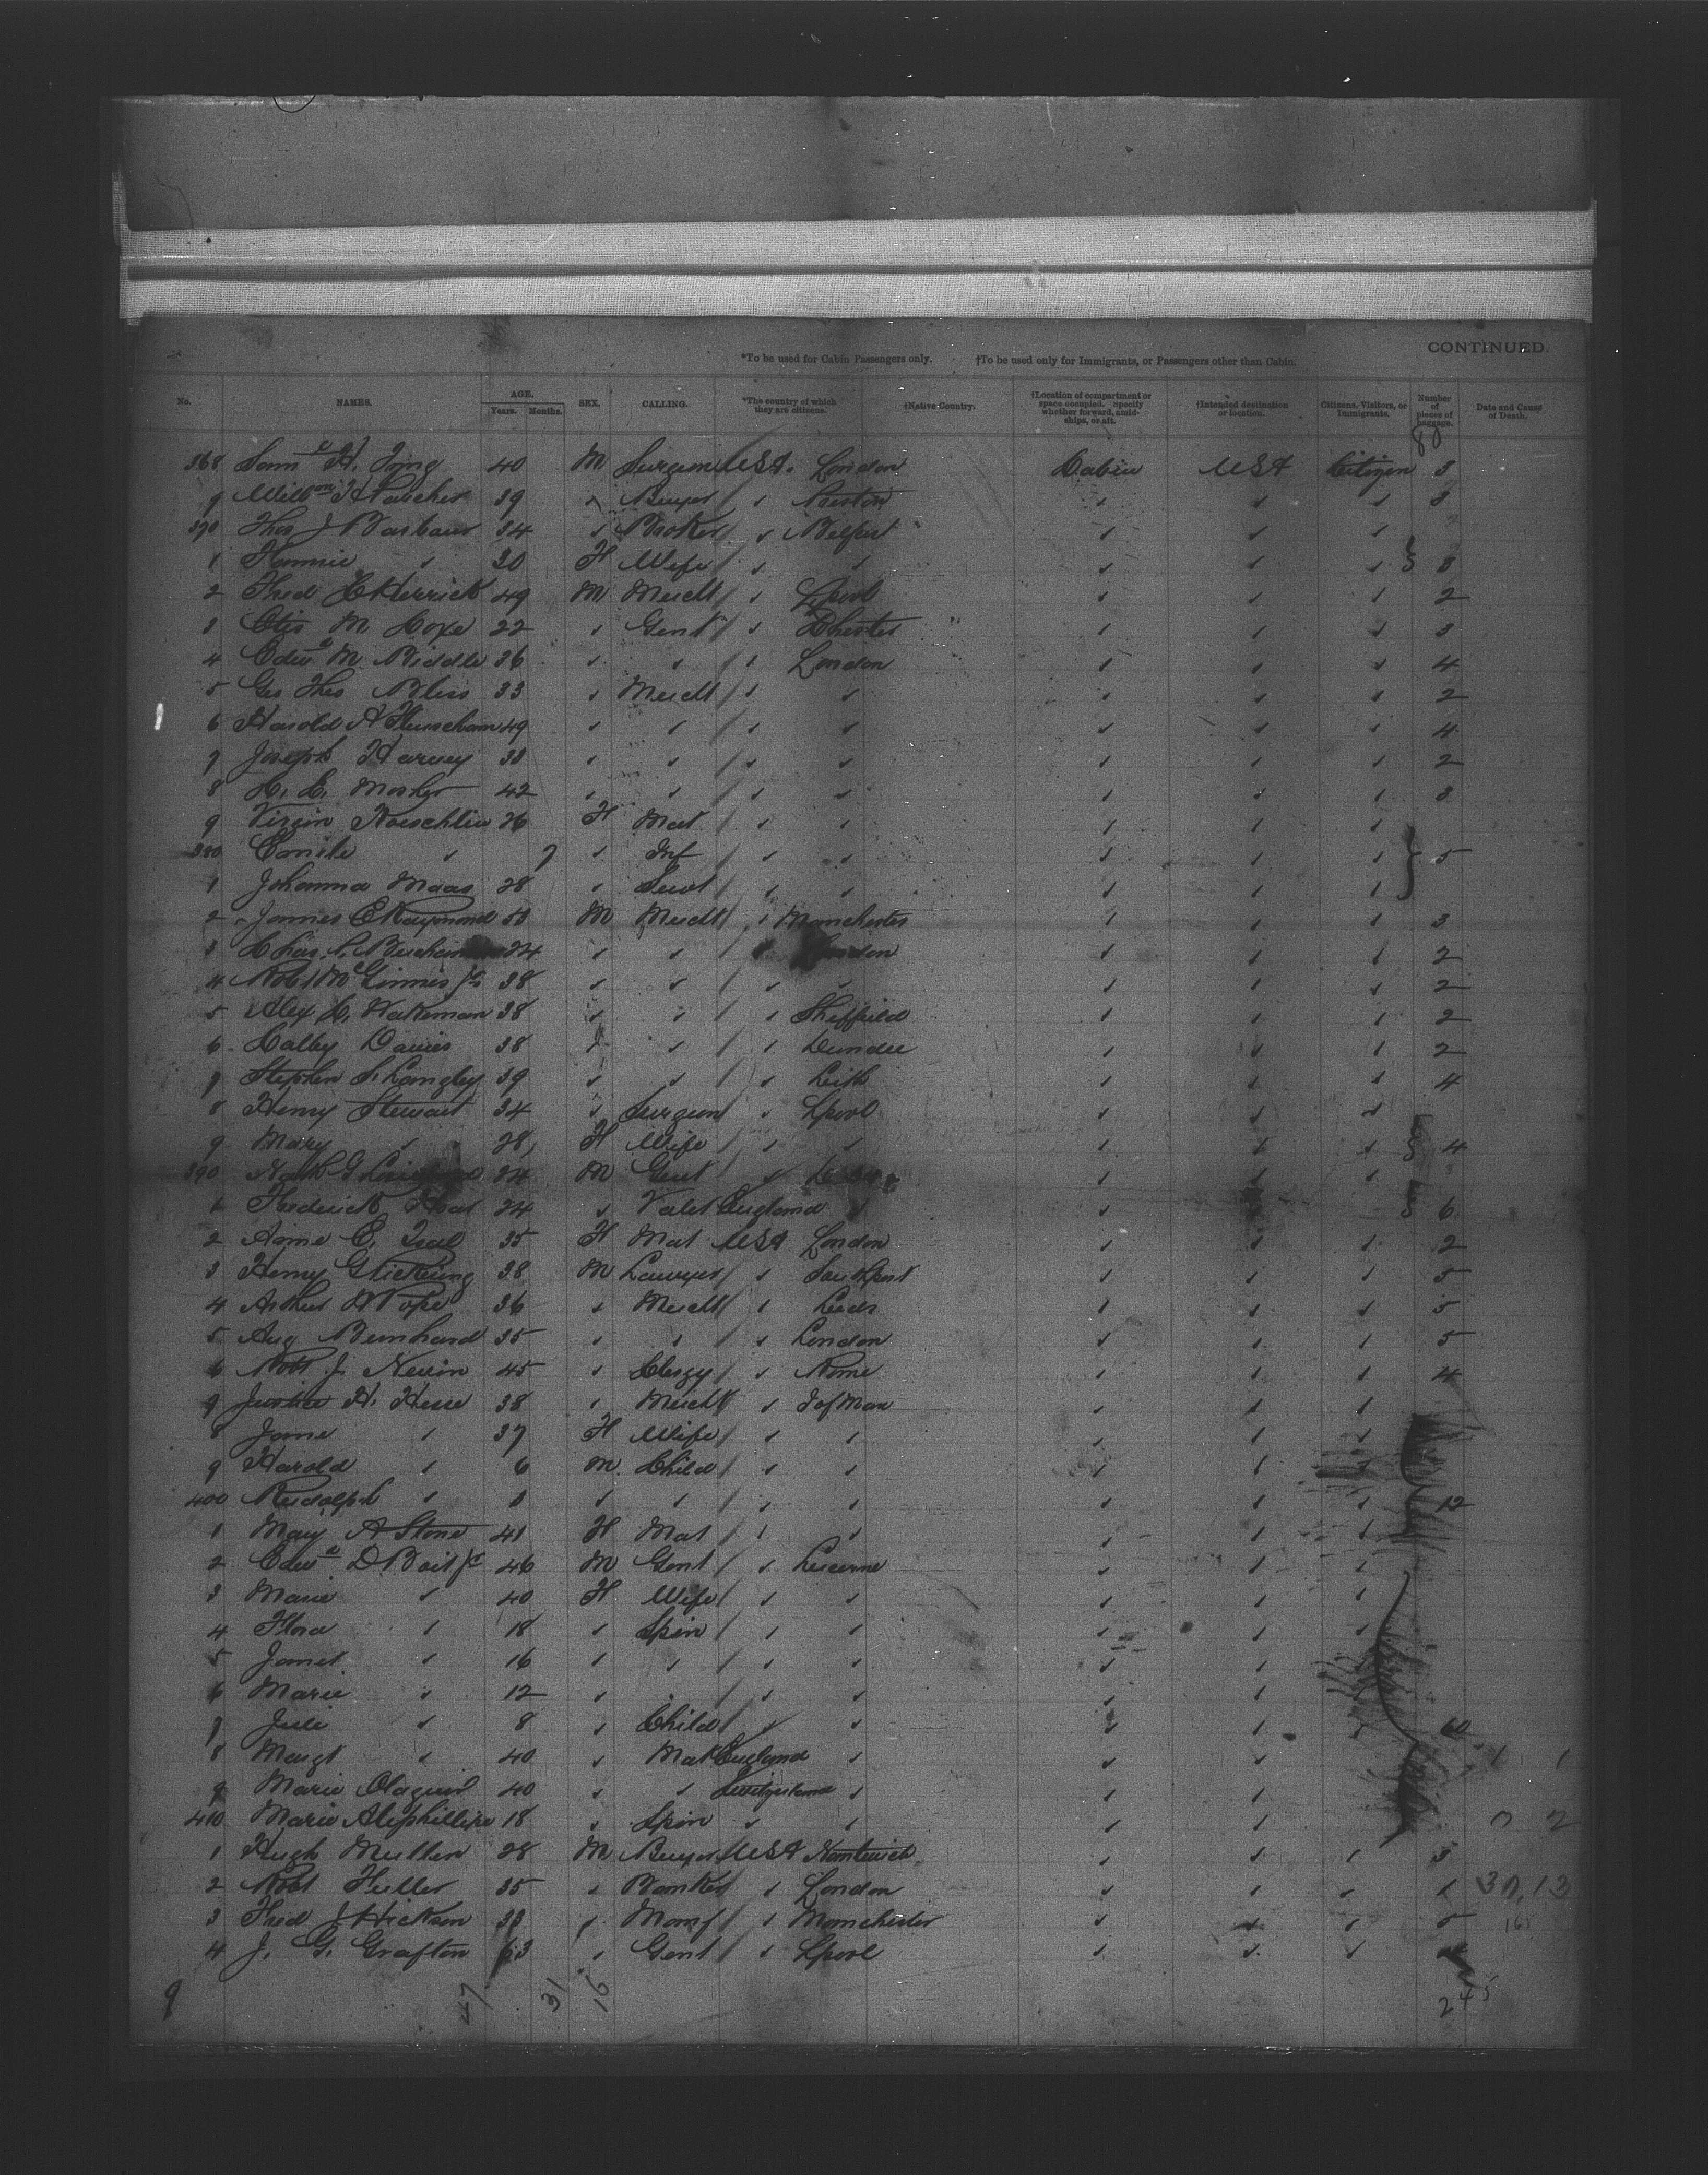 CONTINUED.
*To be used for Cabin Passengers only. †To be used only for Immigrants, or Passengers other than Cabin.
No. NAMES. AGE. Years. Months. SEX. CALLING. *The country of which they are citizens. †Native Country. †Location of compartment or space occupied. Specify whether forward, amidships, or aft. †Intended destination or location. Citizens, Visitors, or Immigrants. Number of pieces of baggage. Date and Cause of Death.
80
368 Saml H. 40 M Surgeon USA. London Cabin USA Citizen 3
9 39 ✓ Buyer ✓ Preston ✓ ✓ ✓ 3
370 Thos J 34 ✓ Broker ✓ Belfast ✓ ✓ ✓
1 Fannie ✓ 30 F Wife ✓ ✓ ✓ ✓ ✓ 8
2 Fred C Herrick 49 M Mercht ✓ Lpool ✓ ✓ ✓ 2
3 Otis M. Coxe 22 ✓ Gent ✓ Chester ✓ ✓ ✓ 3
4 Edwd M. Biddle 36 ✓ ✓ ✓ London ✓ ✓ ✓ 4
5 Geo Thos Bliss 33 ✓ Mercht ✓ ✓ ✓ ✓ ✓ 2
6 Harold A 49 ✓ ✓ ✓ ✓ ✓ ✓ ✓ 4
7 Joseph Harvey 33 ✓ ✓ ✓ ✓ ✓ ✓ ✓ 2
8 Mosher 42 ✓ ✓ ✓ ✓ ✓ ✓ ✓ 3
9 Virgin Koechlin 26 F Mat ✓ ✓ ✓ ✓ ✓
380 ✓ 7 ✓ Inf ✓ ✓ ✓ ✓ ✓ 5
1 Johanna Maas 28 ✓ Servt ✓ ✓ ✓ ✓ ✓
2 James E Raymond 53 M Mercht ✓ Manchester ✓ ✓ ✓ 3
3 Chas 24 ✓ ✓ ✓ London ✓ ✓ ✓ 2
4 Robt McGinnis Jr 38 ✓ ✓ ✓ ✓ ✓ ✓ ✓ 2
5 Alex C. Wakeman 38 ✓ ✓ ✓ Sheffield ✓ ✓ ✓ 2
6 Colby Davies 38 ✓ ✓ ✓ Dundee ✓ ✓ ✓ 2
7 Stephen S. Langley 39 ✓ ✓ ✓ Leith ✓ ✓ ✓ 4
8 Henry Stewart 34 ✓ Surgeon ✓ Lpool ✓ ✓ ✓
9 Mary ✓ 28 F Wife ✓ ✓ ✓ ✓ ✓ 4
390 24 M Gent ✓ ✓ ✓ ✓
1 Frederick 24 ✓ Valet England ✓ ✓ ✓ 6
2 E. 35 F Mat USA London ✓ ✓ ✓ 2
3 Henry G 38 M Lawyer ✓ Southport ✓ ✓ ✓ 5
4 Arthur W Pope 36 ✓ Mercht ✓ Leeds ✓ ✓ ✓ 5
5 Aug Bernhard 35 ✓ ✓ ✓ London ✓ ✓ ✓ 5
6 Robt J. Nevin 45 ✓ Clergy ✓ Rome ✓ ✓ ✓ 4
7 H. Hesse 38 ✓ Mercht ✓ I of Man ✓ ✓ ✓
8 Jane ✓ 37 F Wife ✓ ✓ ✓ ✓ ✓
9 Harold ✓ 6 M. Child ✓ ✓ ✓ ✓ ✓
400 Rudolph ✓ ✓ ✓ ✓ ✓ ✓ ✓ ✓ 12
1 May A Stone 41 F Mat ✓ ✓ ✓ ✓ ✓
2 Edwd D Boit Jr 46 M Gent ✓ Lucerne ✓ ✓ ✓
3 Marie ✓ 40 F Wife ✓ ✓ ✓ ✓ ✓
4 Flora ✓ 18 ✓ Spin ✓ ✓ ✓ ✓ ✓
5 Janet ✓ 16 ✓ ✓ ✓ ✓ ✓ ✓
6 Marie ✓ 12 ✓ ✓ ✓ ✓ ✓ ✓
7 Juli ✓ 8 ✓ Child ✓ ✓ ✓ ✓ ✓ 60
8 Margt ✓ 40 ✓ Mat England ✓ ✓ ✓ 1 1
9 Marie 40 ✓ ✓ Switzerland ✓ ✓ ✓
410 Marie 18 ✓ Spin ✓ ✓ ✓ ✓ 0 2
1 Hugh Mullen 28 M Buyer USA Nantwich ✓ ✓ ✓ 3
2 Robt Fuller 35 ✓ Banker ✓ London ✓ ✓ ✓ 1 30,13
3 Fred J Hickson 33 ✓ Manf ✓ Manchester ✓ ✓ ✓ 5 (6)
4 J. G. Grafton 63 ✓ Gent ✓ Lpool ✓ ✓ ✓
9 47 31 16 245